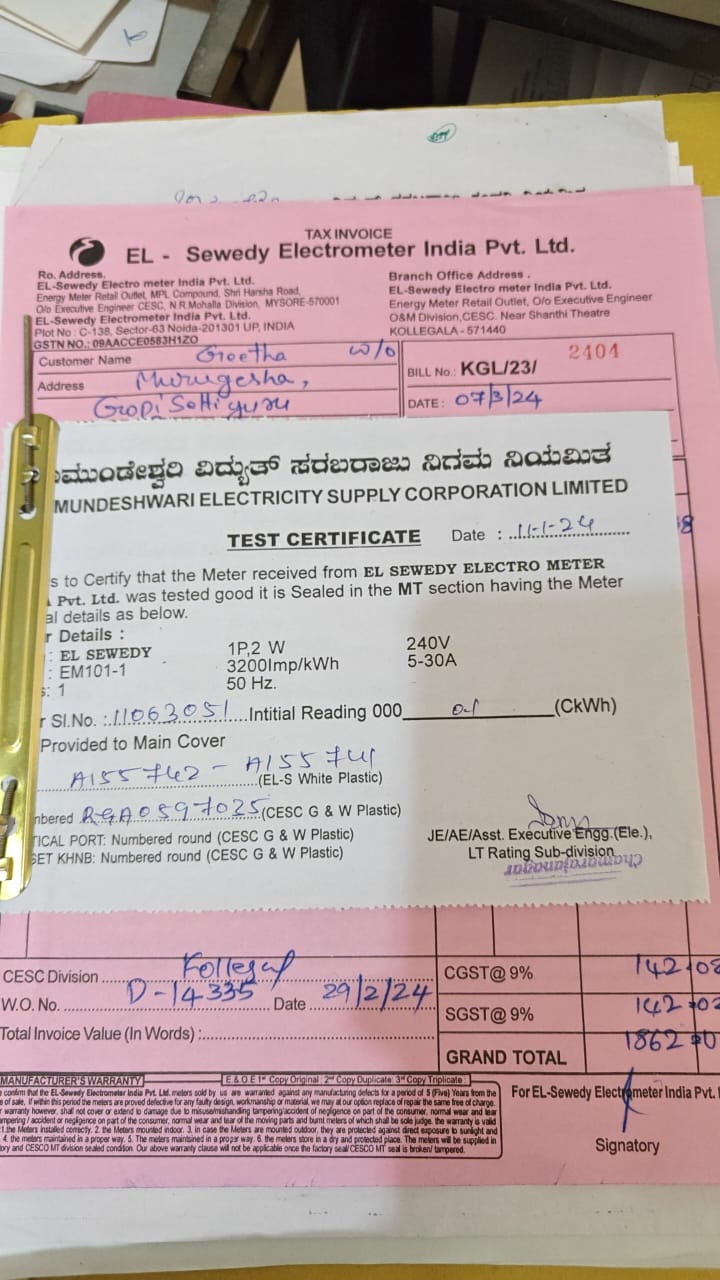 TAX INVOICE
EL - Sewedy Electrometer India Pvt. Ltd.
Ro. Address.
EL-Sewedy Electro meter India Pvt. Ltd.
Energy Meter Retail Outlet, MPL Compound, Shri Harsha Road,
O/o Executive Engineer CESC, N.R.Mohalla Division, MYSORE-570001
EL-Sewedy Electrometer India Pvt. Ltd.
Plot No : C-138, Sector-63 Noida-201301 UP, INDIA
GSTN NO.: 09AACCE0583H1ZO
Branch Office Address .
EL-Sewedy Electro meter India Pvt. Ltd.
Energy Meter Retail Outlet, O/o Executive Engineer
O&M Division,CESC. Near Shanthi Theatre
KOLLEGALA - 571440
Customer Name Geetha w/o
Address Murugesha,
BILL No.: KGL/23/ 2404
DATE : 07/3/24
ಮುಂಡೇಶ್ವರಿ ವಿದ್ಯುತ್ ಸರಬರಾಜು ನಿಗಮ ನಿಯಮಿತ
MUNDESHWARI ELECTRICITY SUPPLY CORPORATION LIMITED
TEST CERTIFICATE Date : 11-1-24
s to Certify that the Meter received from EL SEWEDY ELECTRO METER
Pvt. Ltd. was tested good it is Sealed in the MT section having the Meter
al details as below.
r Details :
: EL SEWEDY 1P,2 W 240V
: EM101-1 3200Imp/kWh 5-30A
s: 1 50 Hz.
r Sl.No. : 11063051 Intitial Reading 000 01 (CkWh)
Provided to Main Cover
A155742 - A155741
(EL-S White Plastic)
nbered RGA0597025 (CESC G & W Plastic)
TICAL PORT: Numbered round (CESC G & W Plastic)
SET KHNB: Numbered round (CESC G & W Plastic)
JE/AE/Asst. Executive Engg.(Ele.),
LT Rating Sub-division
Chamarajanagar
CESC Division Kollegal
W.O. No. D-14335 Date 29/2/24
Total Invoice Value (In Words) :
CGST@ 9% 142.08
SGST@ 9% 142.02
GRAND TOTAL 1862.0
MANUFACTURER'S WARRANTY E.&.O.E 1st Copy Original : 2nd Copy Duplicate: 3rd Copy Triplicate :
confirm that the EL-Sewedy Electrometer India Pvt. Ltd. meters sold by us are warranted against any manufacturing defects for a period of 5 (Five) Years from the
e of sale. If within this period the meters are proved defective for any faulty design, workmanship or material, we may at our option replace of repair the same free of charge.
r warranty however, shall not cover or extend to damage due to misuse/mishandling tampering/accident of negligence on part of the consumer, normal wear and tear
mpering / accident or negligence on part of the consumer, normal wear and tear of the moving parts and burnt meters of which shall be sole judge. the warranty is valid
1.the Meters installed correctly. 2. the Meters mounted indoor. 3. in case the Meters are mounted outdoor, they are protected against direct exposure to sunlight and
4. the meters maintained in a proper way. 5. The meters maintained in a proper way. 6. the meters store in a dry and protected place. The meters will be supplied in
ory and CESCO MT division sealed condition. Our above warranty clause will not be applicable once the factory seal/CESCO MT seal is broken/ tampered.
For EL-Sewedy Electrometer India Pvt.
Signatory